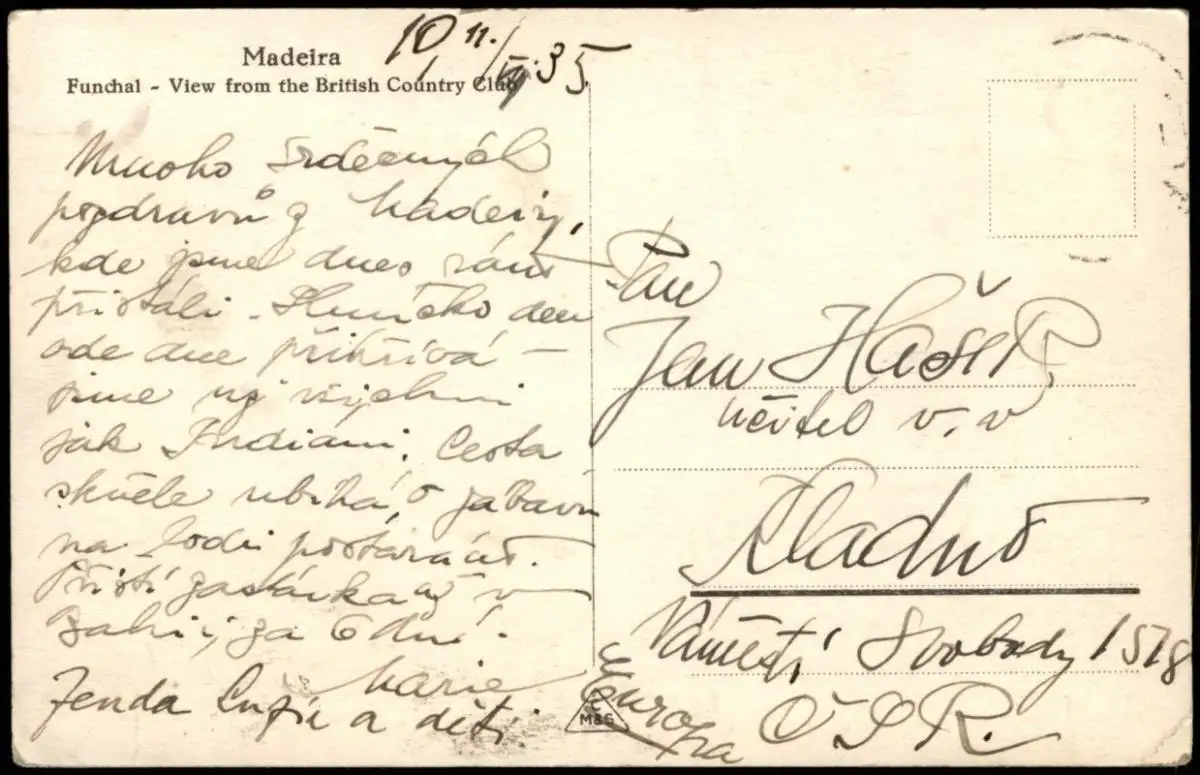 Madeira
Funchal - View from the British Country Club
10/11. 35
Mnoho srdečných
pozdravů z Madeiry,
kde jsme dnes ráno
přistáli. Sluníčko den
ode dne přihřívá –
jsme už všichni
jak Indiáni. Cesta
skvěle ubíhá, o zábavu
na lodi postaráno.
Příští zastávka až v
Bahii, za 6 dní.
Marie
Jenda a děti
Pan
Jan Hašler
učitel v. v
Kladno
Náměstí Svobody 1578
ČSR.
Europa
M&S